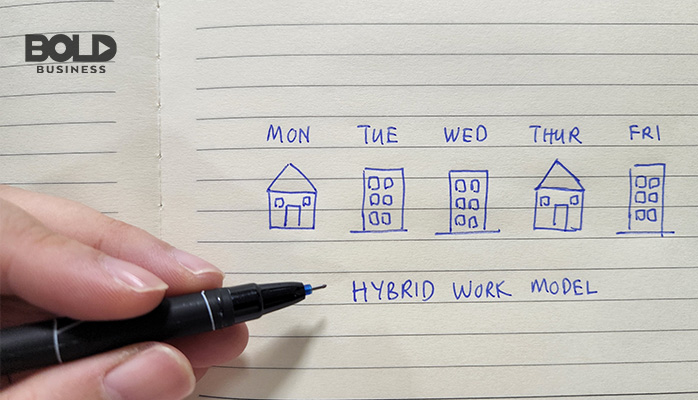 BOLD
BUSINESS
MON TUE WED THUR FRI
HYBRID WORK MODEL